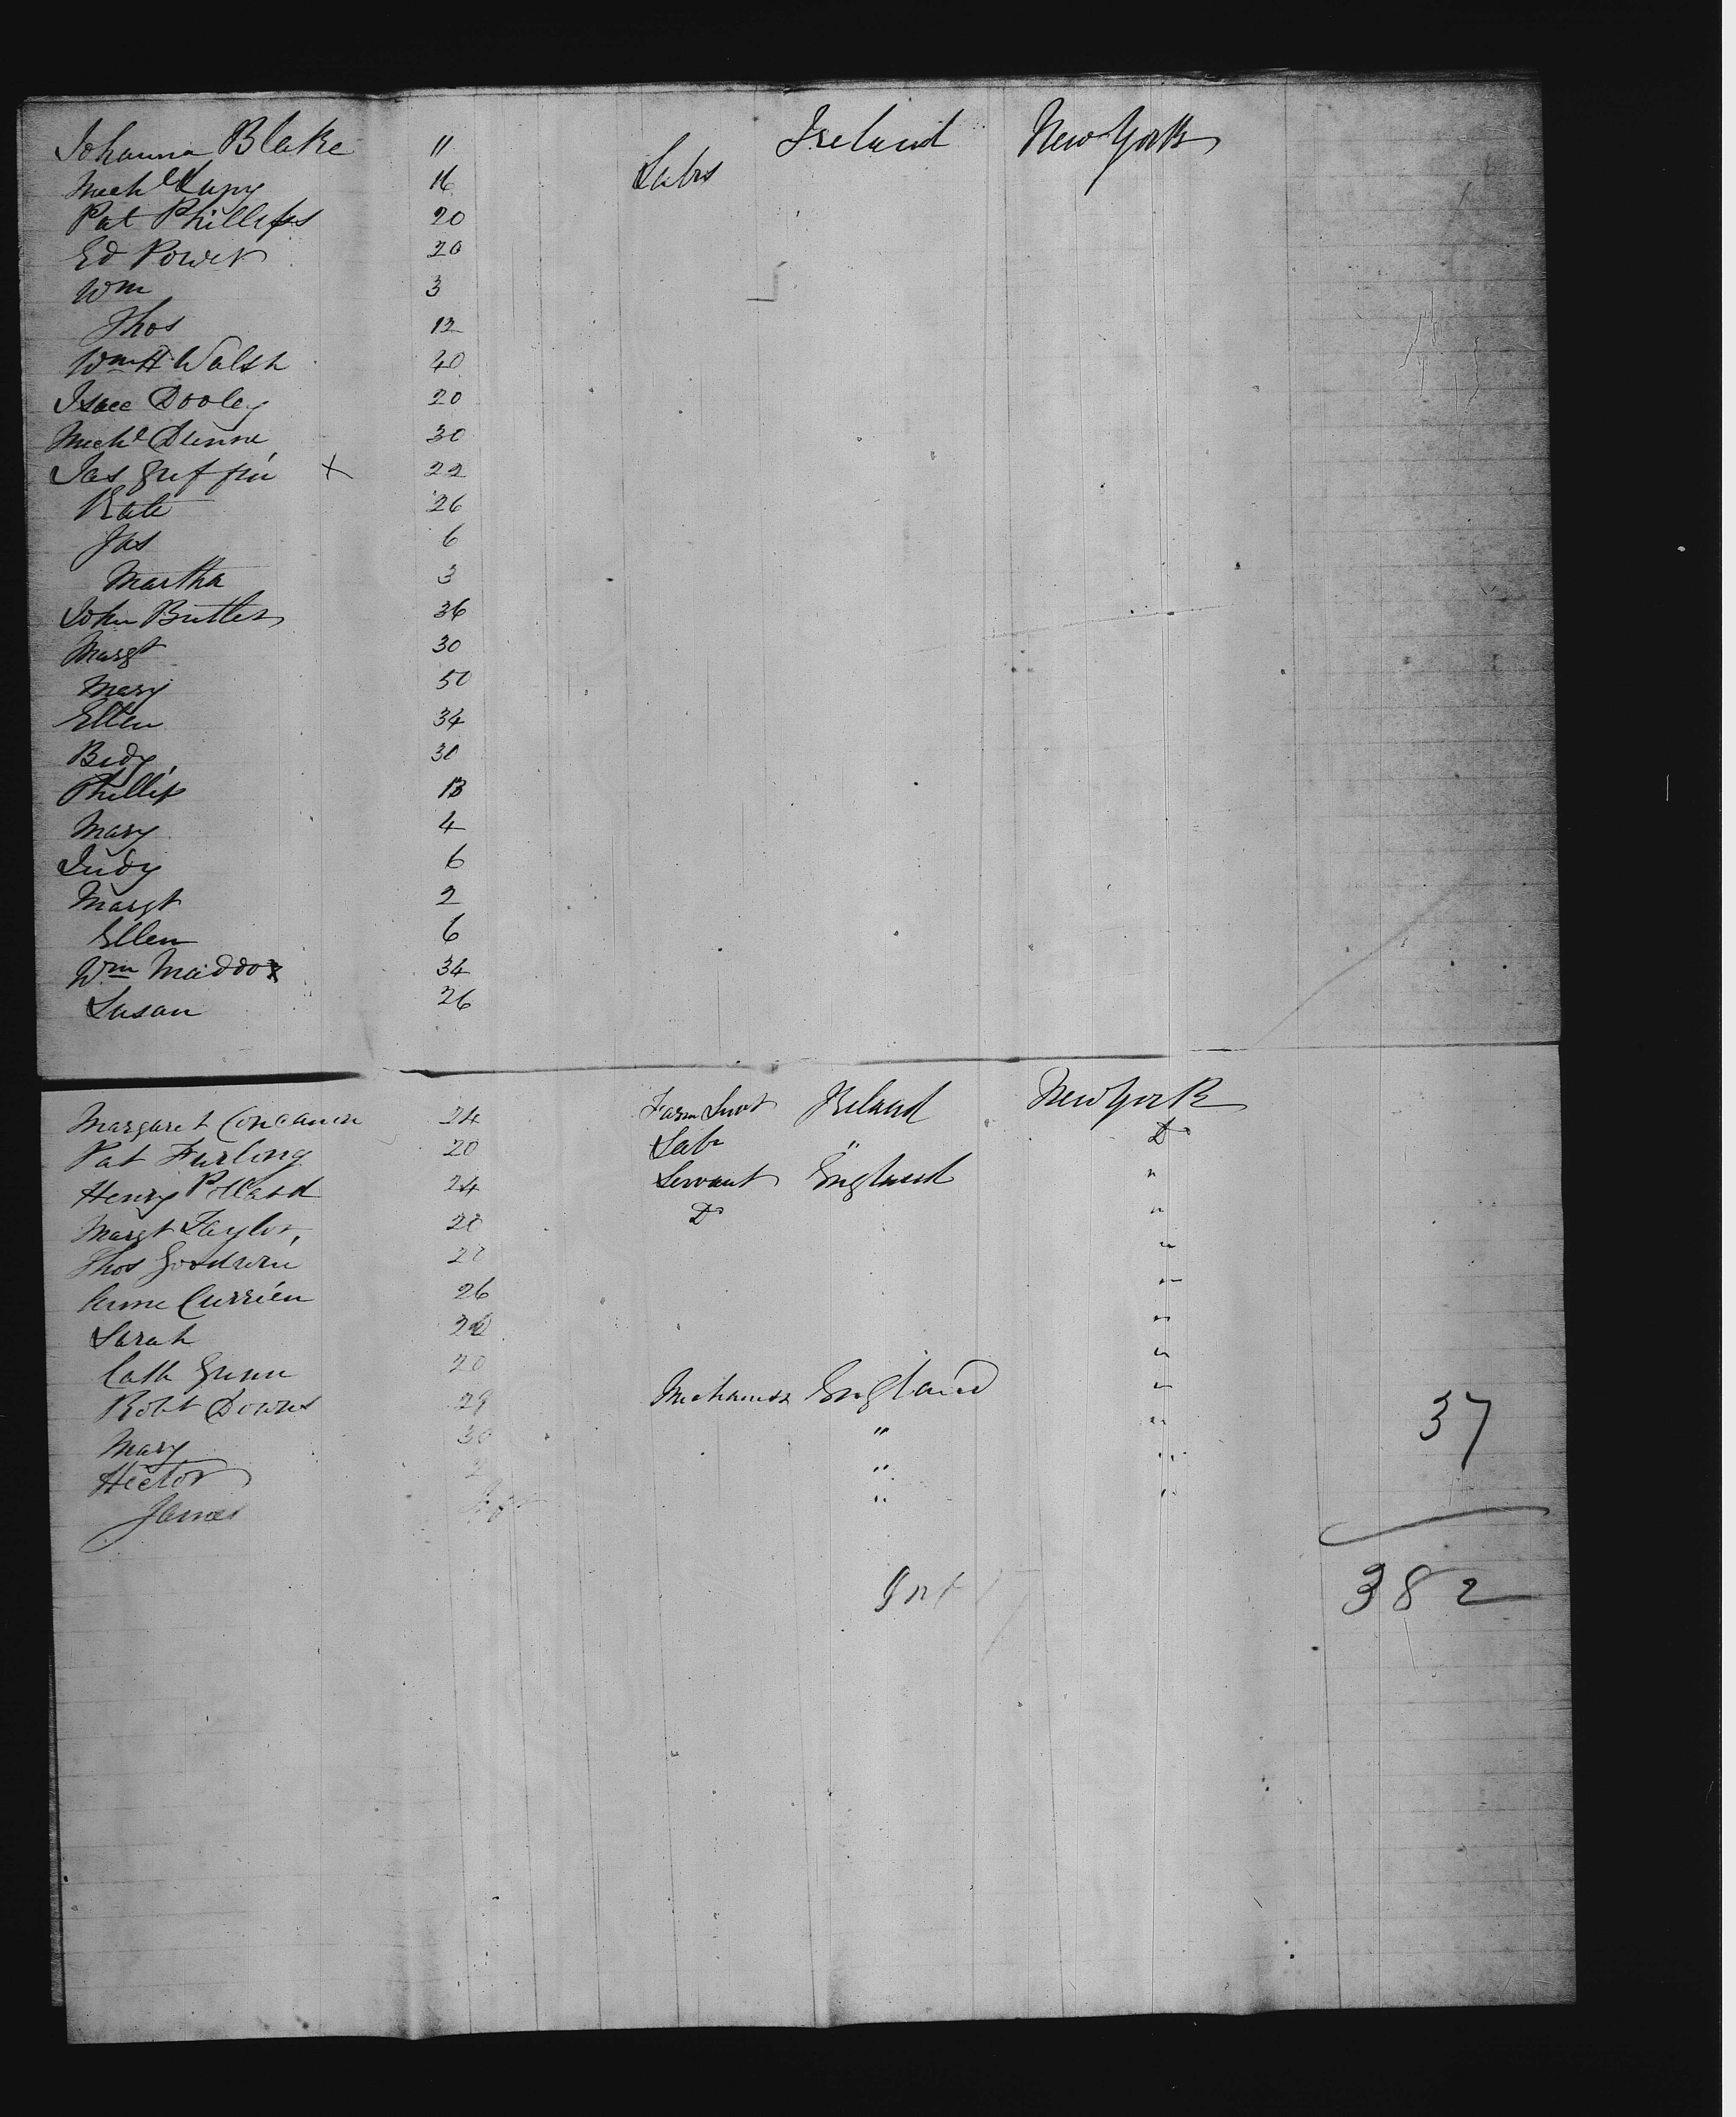 Johanna Blake 11 Ireland New York
Michl 16 Labrs
Pat Phillips 20
Ed Power 20
Wm 3
Thos 12
Wm H Walsh 40
Isaac Dooley 20
Michl Dunne 30
Jas Griffin X 22
Kate 26
Jas 6
Martha 3
John Butler 36
Margt 30
Mary 50
Ellen 34
Bidy 30
Phillip 13
Mary 4
Judy 6
Margt 2
Ellen 6
Wm Maddox 34
Susan 26
Margaret Concannon 24 Farm Servt Ireland New York
Pat Furlong 20 Labr " Do
Henry Pollard 24 Servant England "
Margt Taylor 20 Do "
Thos Goodwin "
Anne Currien 26 "
Sarah "
Cath Gunn 20 "
Robt Downes 29 Mechanics England "
Mary 30 " "
Hector 2 " "
James Inft " "
37
382